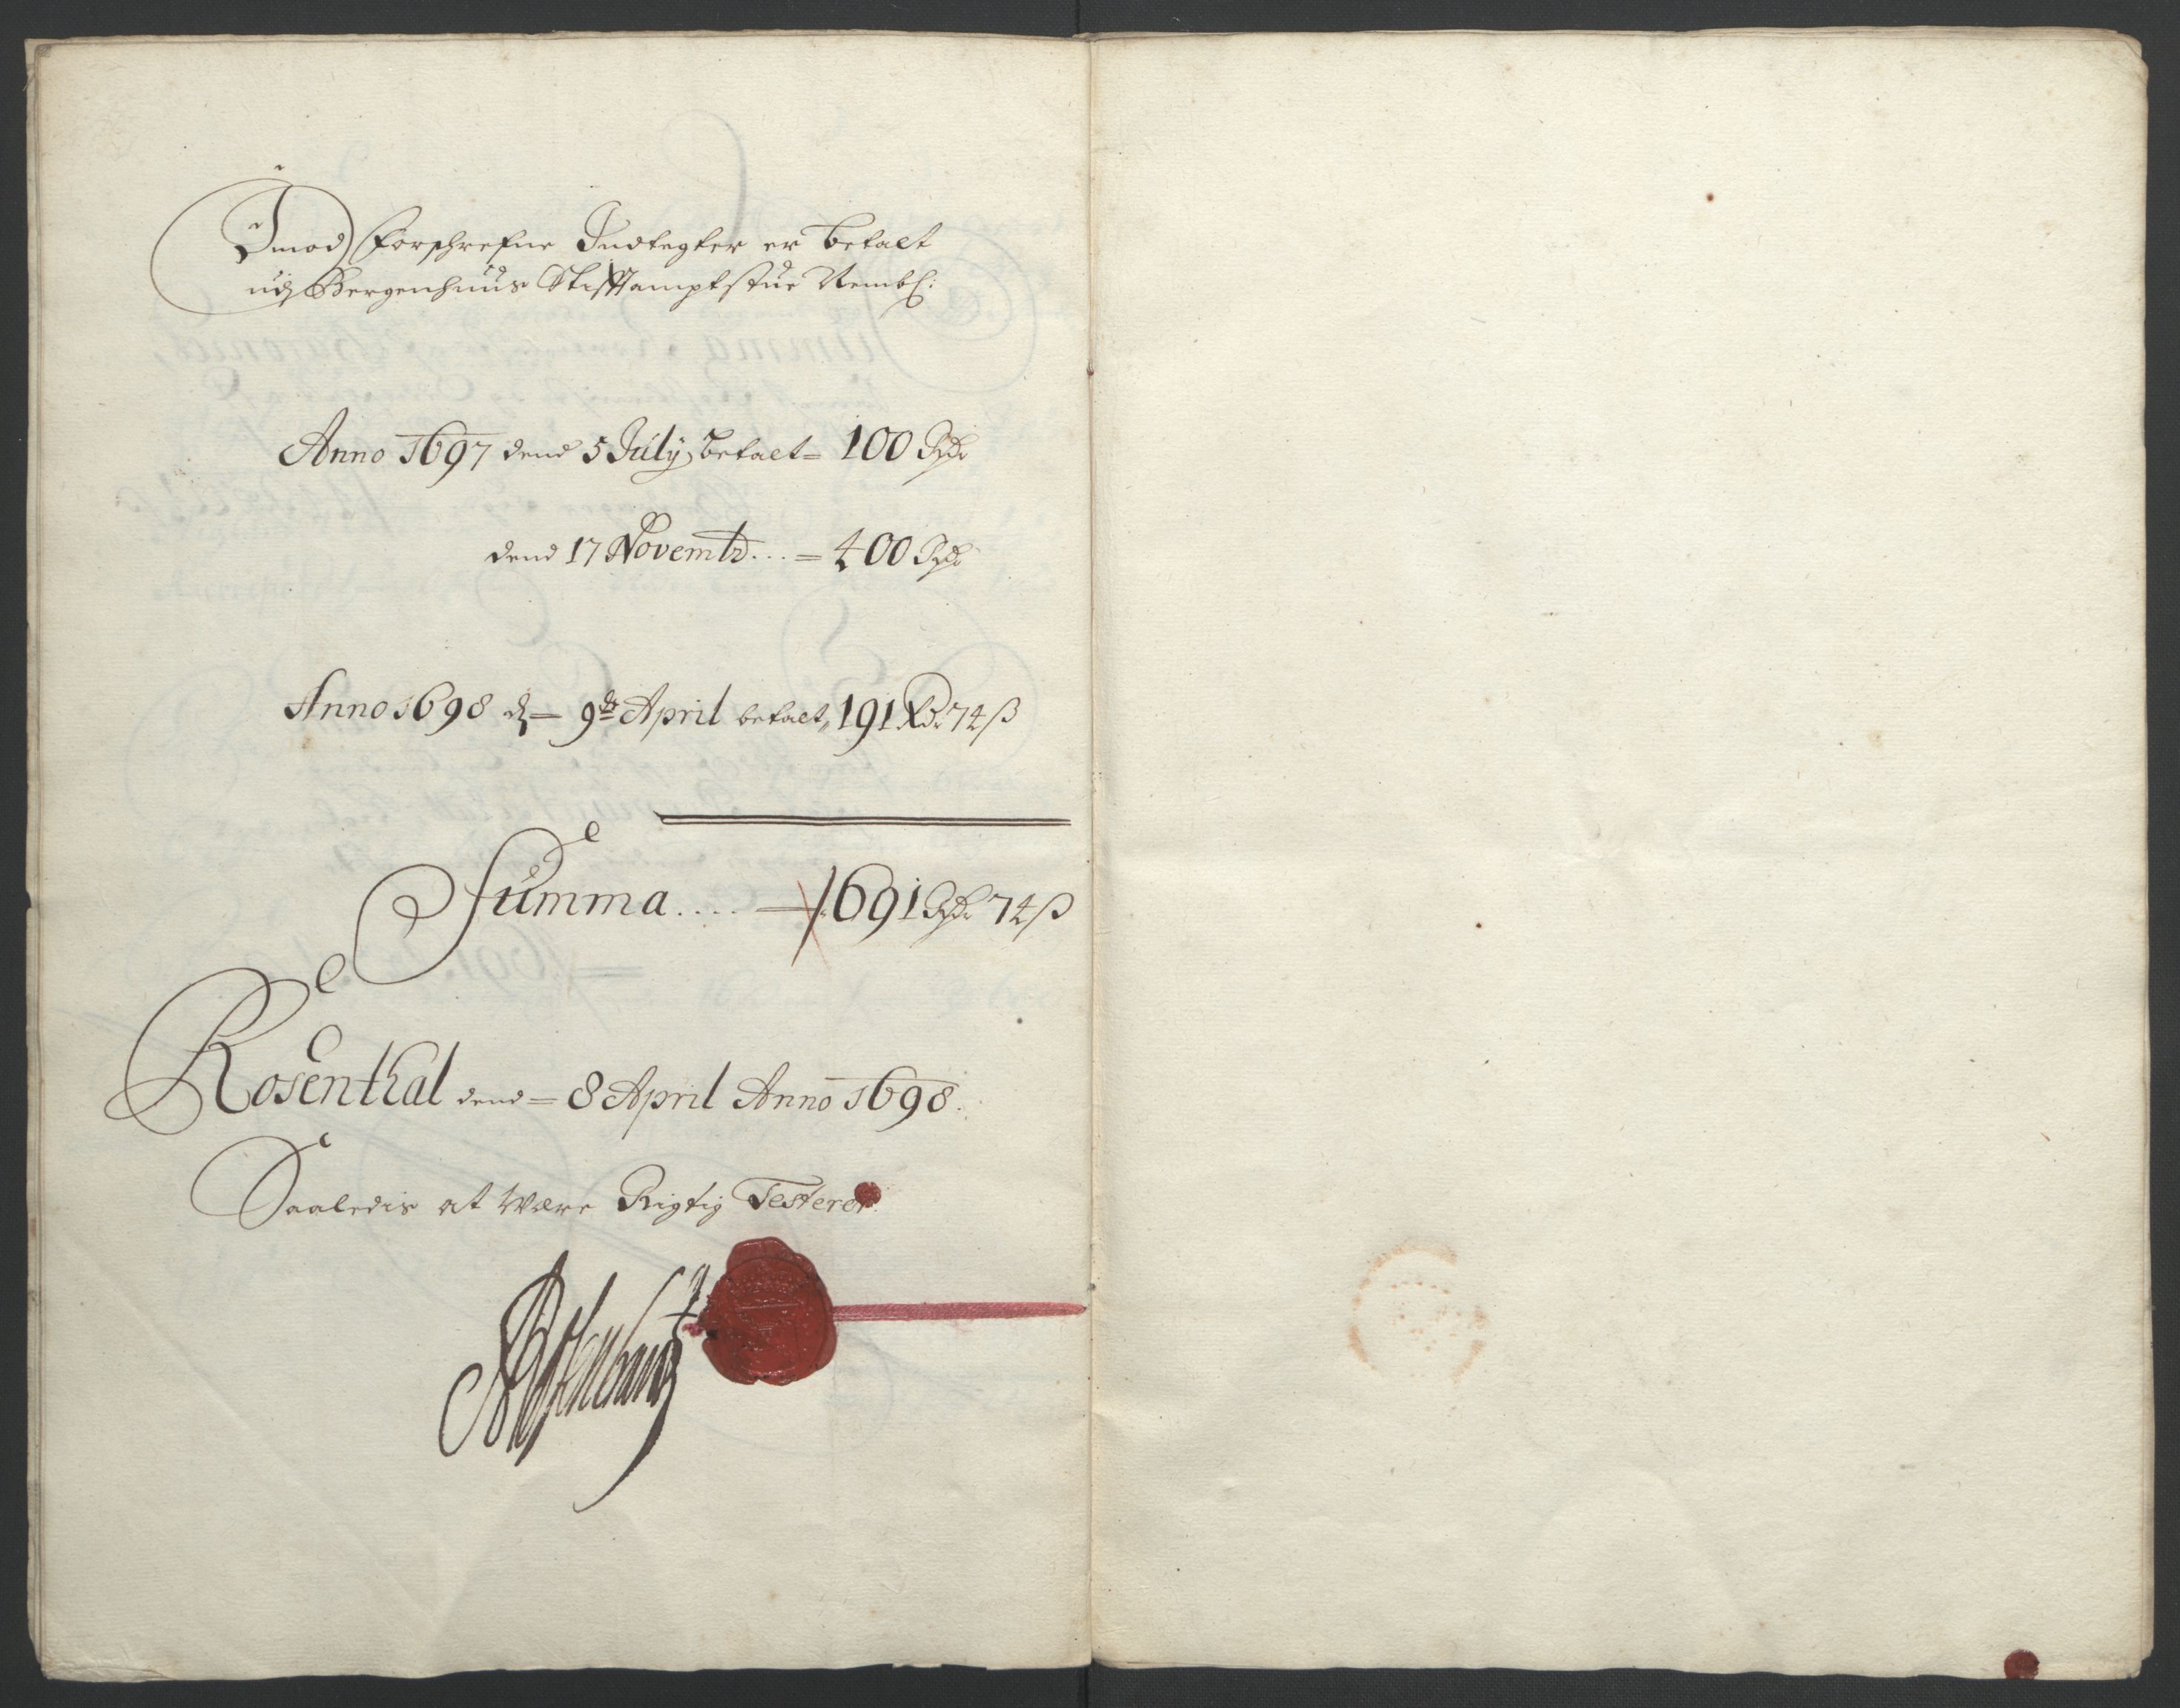 Imod forschrefne Indtegter er betalt
udj Bergenhuus Stifftamptstue Nembl:
Anno 1697 dend 5 July betalt = 100 Rdr
dend 17 Novembr... = 400 Rdr
Anno 1698 d – 9de April betalt, 191 Rdr 74 ß
Summa .... – 691 Rdr 74 ß
Rosenthal dend = 8 April Anno 1698.
Saaledis at være Rigtig Testerer